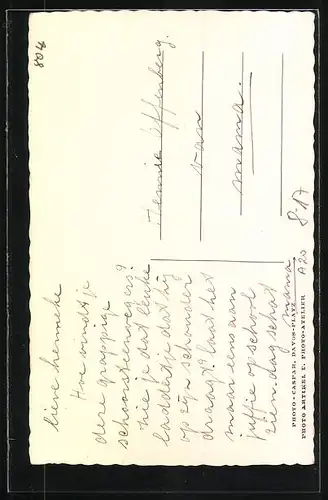 lieve henneke
Hoe vindt je
deze grappige
schoorsteenveger?
zie je dat leuke
laddertje dat hij
op zijn schouder
draagt? Laat het
maar eens aan
juffie op school
zien. dag schat
mama
Jennie Offenberg.
van
mama.
PHOTO • CASPAR, DAVOS-PLATZ
PHOTO ARTIKEL E. PHOTO-ATELIER
804
8-17
A20